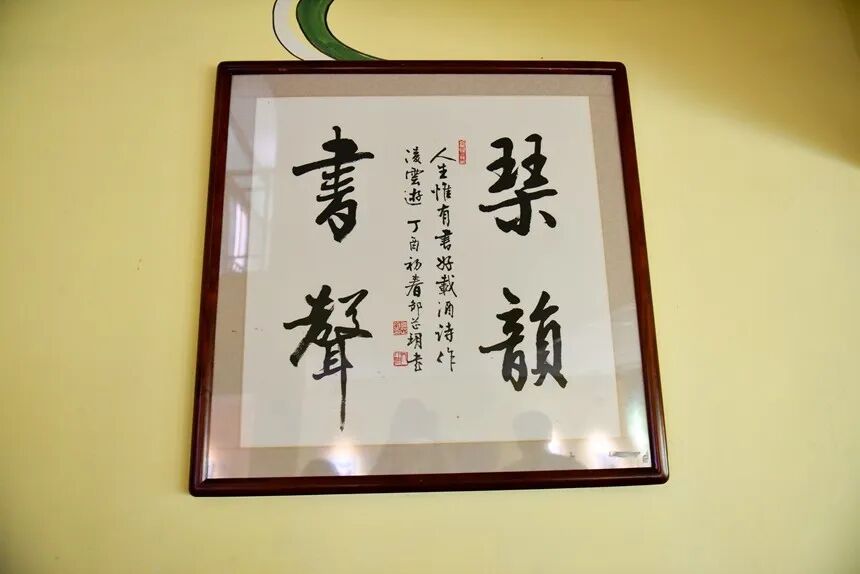 琴韻
書聲
人生惟有書好載酒詩作
凌雲遊丁酉初春
書